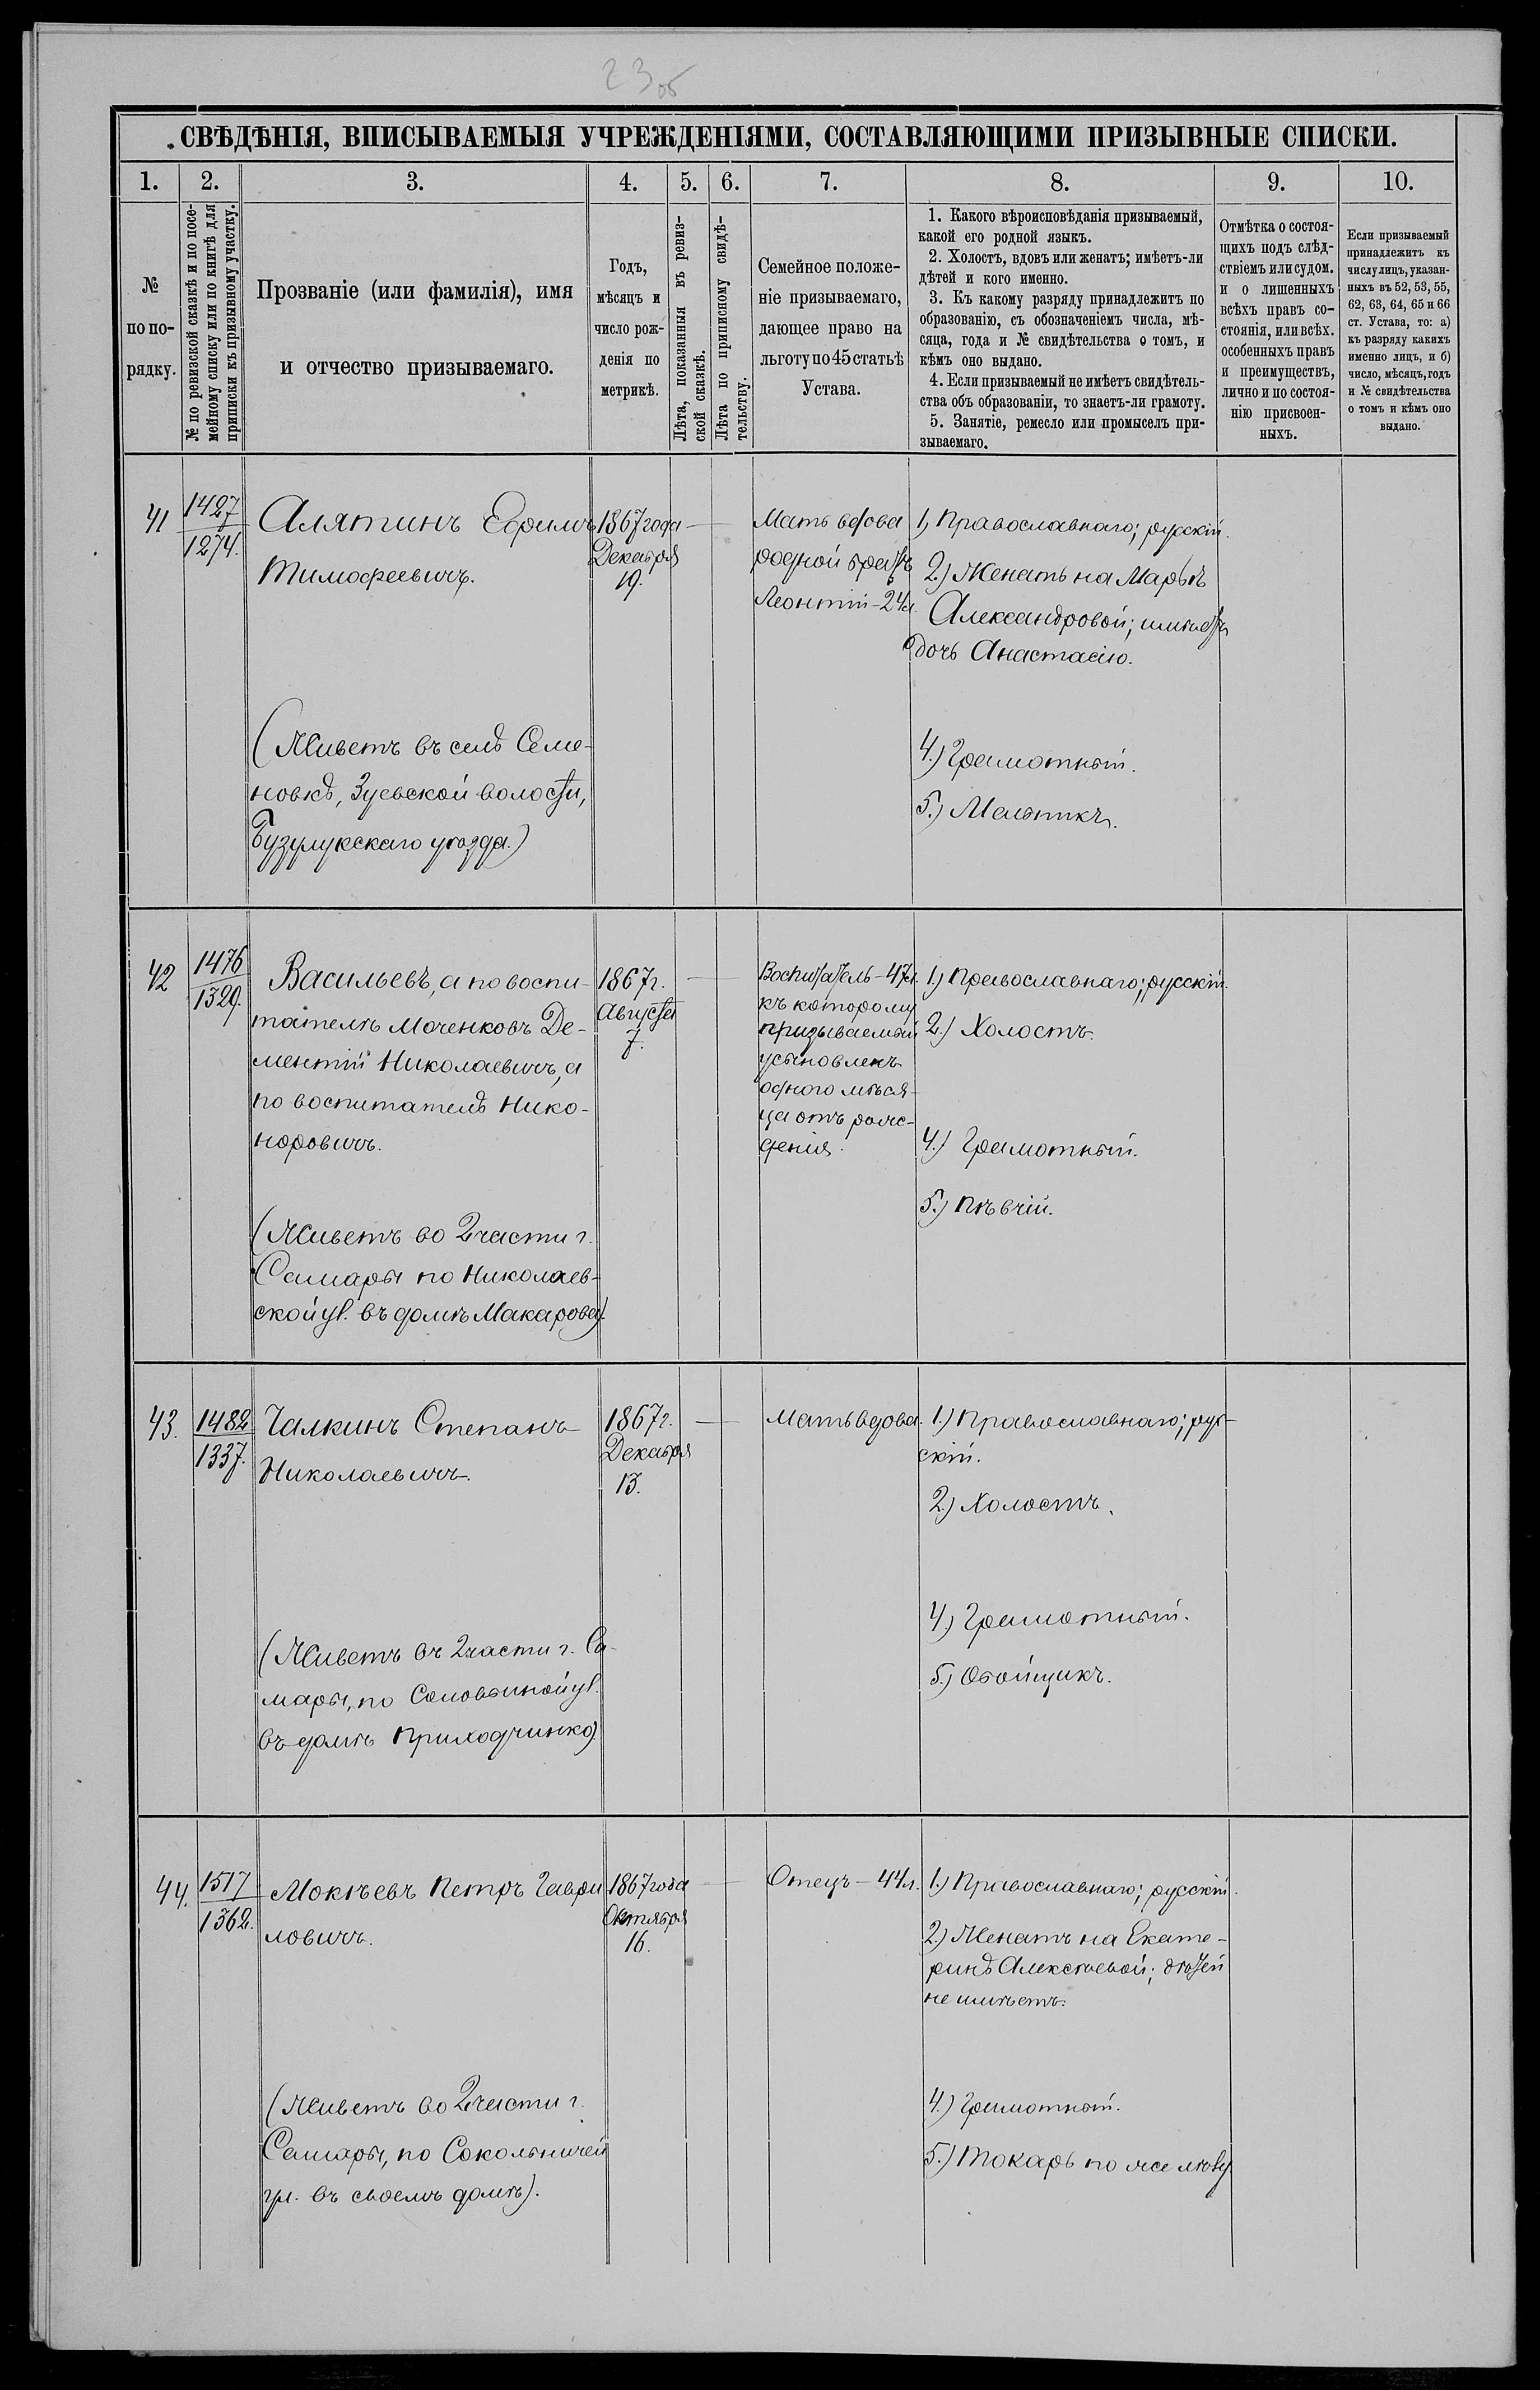 23 об
СВѢДѢНІЯ, ВПИСЫВАЕМЫЯ УЧРЕЖДЕНІЯМИ, СОСТАВЛЯЮЩИМИ ПРИЗЫВНЫЕ СПИСКИ.
1.
2.
3.
4.
5.
6.
7.
8.
9.
10.
№
по по-
рядку.
№ по ревизской сказкѣ и по посе-
мейному списку или по книгѣ для
приписки къ призывному участку.
Прозваніе (или фамилія), имя
и отчество призываемаго.
Годъ,
мѣсяцъ и
число рож-
денія по
метрикѣ.
Лѣта, показанныя въ ревиз-
ской сказкѣ.
Лѣта по приписному свидѣ-
тельству.
Семейное положе-
ніе призываемаго,
дающее право на
льготу по 45 статьѣ
Устава.
1. Какого вѣроисповѣданія призываемый,
какой его родной языкъ.
2. Холостъ, вдовъ или женатъ; имѣетъ-ли
дѣтей и кого именно.
3. Къ какому разряду принадлежитъ по
образованію, съ обозначеніемъ числа, мѣ-
сяца, года и № свидѣтельства о томъ, и
кѣмъ оно выдано.
4. Если призываемый не имѣетъ свидѣтель-
ства объ образованіи, то знаетъ-ли грамоту.
5. Занятіе, ремесло или промыселъ при-
зываемаго.
Отмѣтка о состоя-
щихъ подъ слѣд-
ствіемъ или судом.
и о лишенныхъ
всѣхъ правъ со-
стоянія, или всѣх.
особенныхъ правъ
и преимуществъ,
лично и по состоя-
нію присвоен-
ныхъ.
Если призываемый
принадлежитъ къ
числу лицъ, указан-
ныхъ въ 52, 53, 55,
62, 63, 64, 65 и 66
ст. Устава, то: а)
къ разряду какихъ
именно лицъ, и б)
число, мѣсяцъ, годъ
и № свидѣтельства
о томъ и кѣмъ оно
выдано.
41
1427
1274.
Алятинъ Ефримъ
Тимофеевичъ.
(Живетъ въ селѣ Семе-
новкѣ, Зуевской волости,
Бузулукскаго уѣзда.)
1867 года
Декабря
19.
Мать вдова
родной братъ
Леонтій - 24 л.
1) Православнаго; русскій.
2.) Женатъ на Марьѣ
Александровой; имѣетъ
дочь Анастасію.
4.) Грамотный.
5.) Мельникъ.
42
1476
1329.
Васильевъ, а по воспи-
тателю Моченковъ Де-
ментій Николаевичъ, а
по воспитателю Нико-
норовичъ.
(Живетъ во 2 части г.
Самары по Николаев-
ской ул. въ домѣ Макарова).
1867 г.
Августа
7.
Воспитатель - 47 л.
къ которому
призываемый
усыновленъ
одного мѣся-
ца отъ рож-
денія.
1.) Православнаго; русскій.
2.) Холостъ.
4.) Грамотный.
5.) Пѣвчій.
43.
1482
1337.
Чалкинъ Степанъ
Николаевичъ.
(Живетъ въ 2 части г. Са-
мары, по Соловьиной ул.
въ домѣ Приходчинко)
1867 г.
Декабря
13.
Мать вдова.
1.) Православнаго; рус-
скій.
2.) Холостъ.
4.) Грамотный.
5.) Обойщикъ.
44.
1517
1362.
Мокѣевъ Петръ Гаври
ловичъ.
(Живетъ во 2 части г.
Самары, по Сокольничей
ул. въ своемъ домѣ).
1867 года
Октября
16.
Отецъ - 44 л.
1.) Православнаго; русскій.
2.) Женатъ на Екате-
ринѣ Алексѣевой; дѣтей
не имѣетъ.
4.) Грамотный.
5.) Токарь по